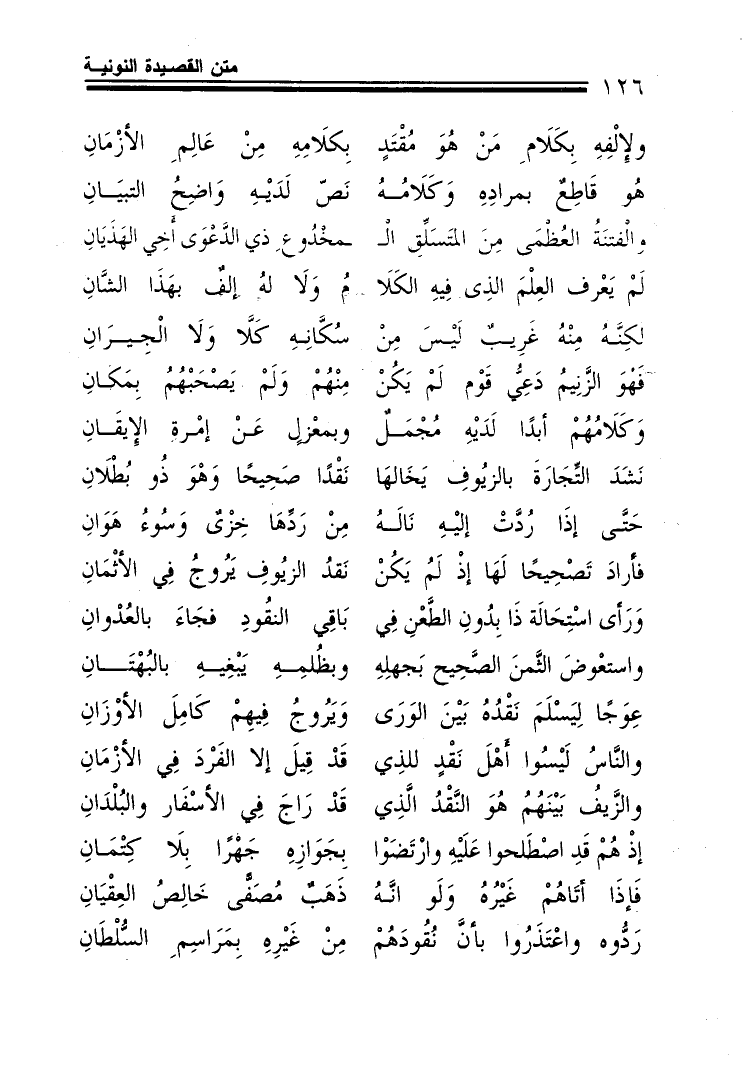 متن القصيدة النونية
١٢٦
ولإلْفِهِ بِكَلَامِ مَنْ هُوَ مُقْتَدٍ بِكَلَامِهِ مِنْ عَالِمِ الأَزْمَانِ
هُو قَاطِعٌ بمرادِهِ وَكَلَامُهُ نَصّ لَدَيْهِ وَاضِحُ التبيَانِ
والفتنةُ العُظْمَى مِنَ المتَسَلِّقِ الْـ ـمخْدُوعِ ذي الدَّعْوَى أَخِي الهَذَيانِ
لَمْ يَعْرِف العِلْمَ الذِى فِيهِ الكَلَا مُ وَلَا لهُ إلفٌ بهَذَا الشَّانِ
لكِنَّهُ مِنْهُ غَرِيبٌ لَيْسَ مِنْ سُكَّانِهِ كَلَّا وَلَا الْجِيرَانِ
فَهْوَ الزَّنِيمُ دَعِيُّ قَوْمٍ لَمْ يَكُنْ مِنْهُمْ وَلَمْ يَصْحَبْهُمُ بِمَكَانِ
وَكَلَامُهُمْ أبدًا لَدَيْهِ مُجْمَلٌ وبمعْزلٍ عَنْ إمْرةِ الإيقَانِ
نَشَدَ التِّجَارَةَ بالزيُوفِ يَخَالها نَقْدًا صَحِيحًا وَهْوَ ذُو بُطْلَانِ
حَتَّى إذَا رُدَّتْ إليْهِ نَالَهُ مِنْ رَدِّهَا خِزْىٌ وَسُوءُ هَوَانِ
فأرادَ تَصْحِيحًا لَهَا إذْ لَمْ يَكُنْ نَقدُ الزيُوفِ يَرُوجُ فِي الأثْمَانِ
وَرَأى اسْتِحَالَةَ ذَا بِدُونِ الطَّعْنِ فِي بَاقِي النقُودِ فجَاءَ بالعُدْوانِ
واستعْوضَ الثَّمنَ الصَّحِيحَ بجَهلِهِ وبظُلمِهِ يَبْغيهِ بالبُهْتَانِ
عِوَجًا لِيَسْلَمَ نَقْدُهُ بَيْنَ الوَرَى وَيَرُوجُ فِيهِمْ كَامِلَ الأوْزَانِ
والنَّاسُ لَيْسُوا أَهْلَ نَقْدٍ للذِي قَدْ قِيلَ إلا الفَرْدَ فِي الأزْمَانِ
والزَّيفُ بَيْنَهُمُ هُوَ النَّقْدُ الَّذِي قَدْ رَاجَ فِي الأسْفَارِ والبُلْدَانِ
إذْ هُمْ قَدِ اصْطَلَحوا عَلَيْهِ وارْتضَوْا بجَوازِهِ جَهْرًا بِلَا كِتْمَانِ
فَإذَا أتَاهُمْ غَيْرُهُ وَلَو انَّهُ ذَهَبٌ مُصَفًّى خَالِصُ العِقيَانِ
رَدُّوه واعْتَذَرُوا بأنَّ نُقُودَهُمْ مِنْ غَيْرِهِ بِمَرَاسِمِ السُّلْطَانِ